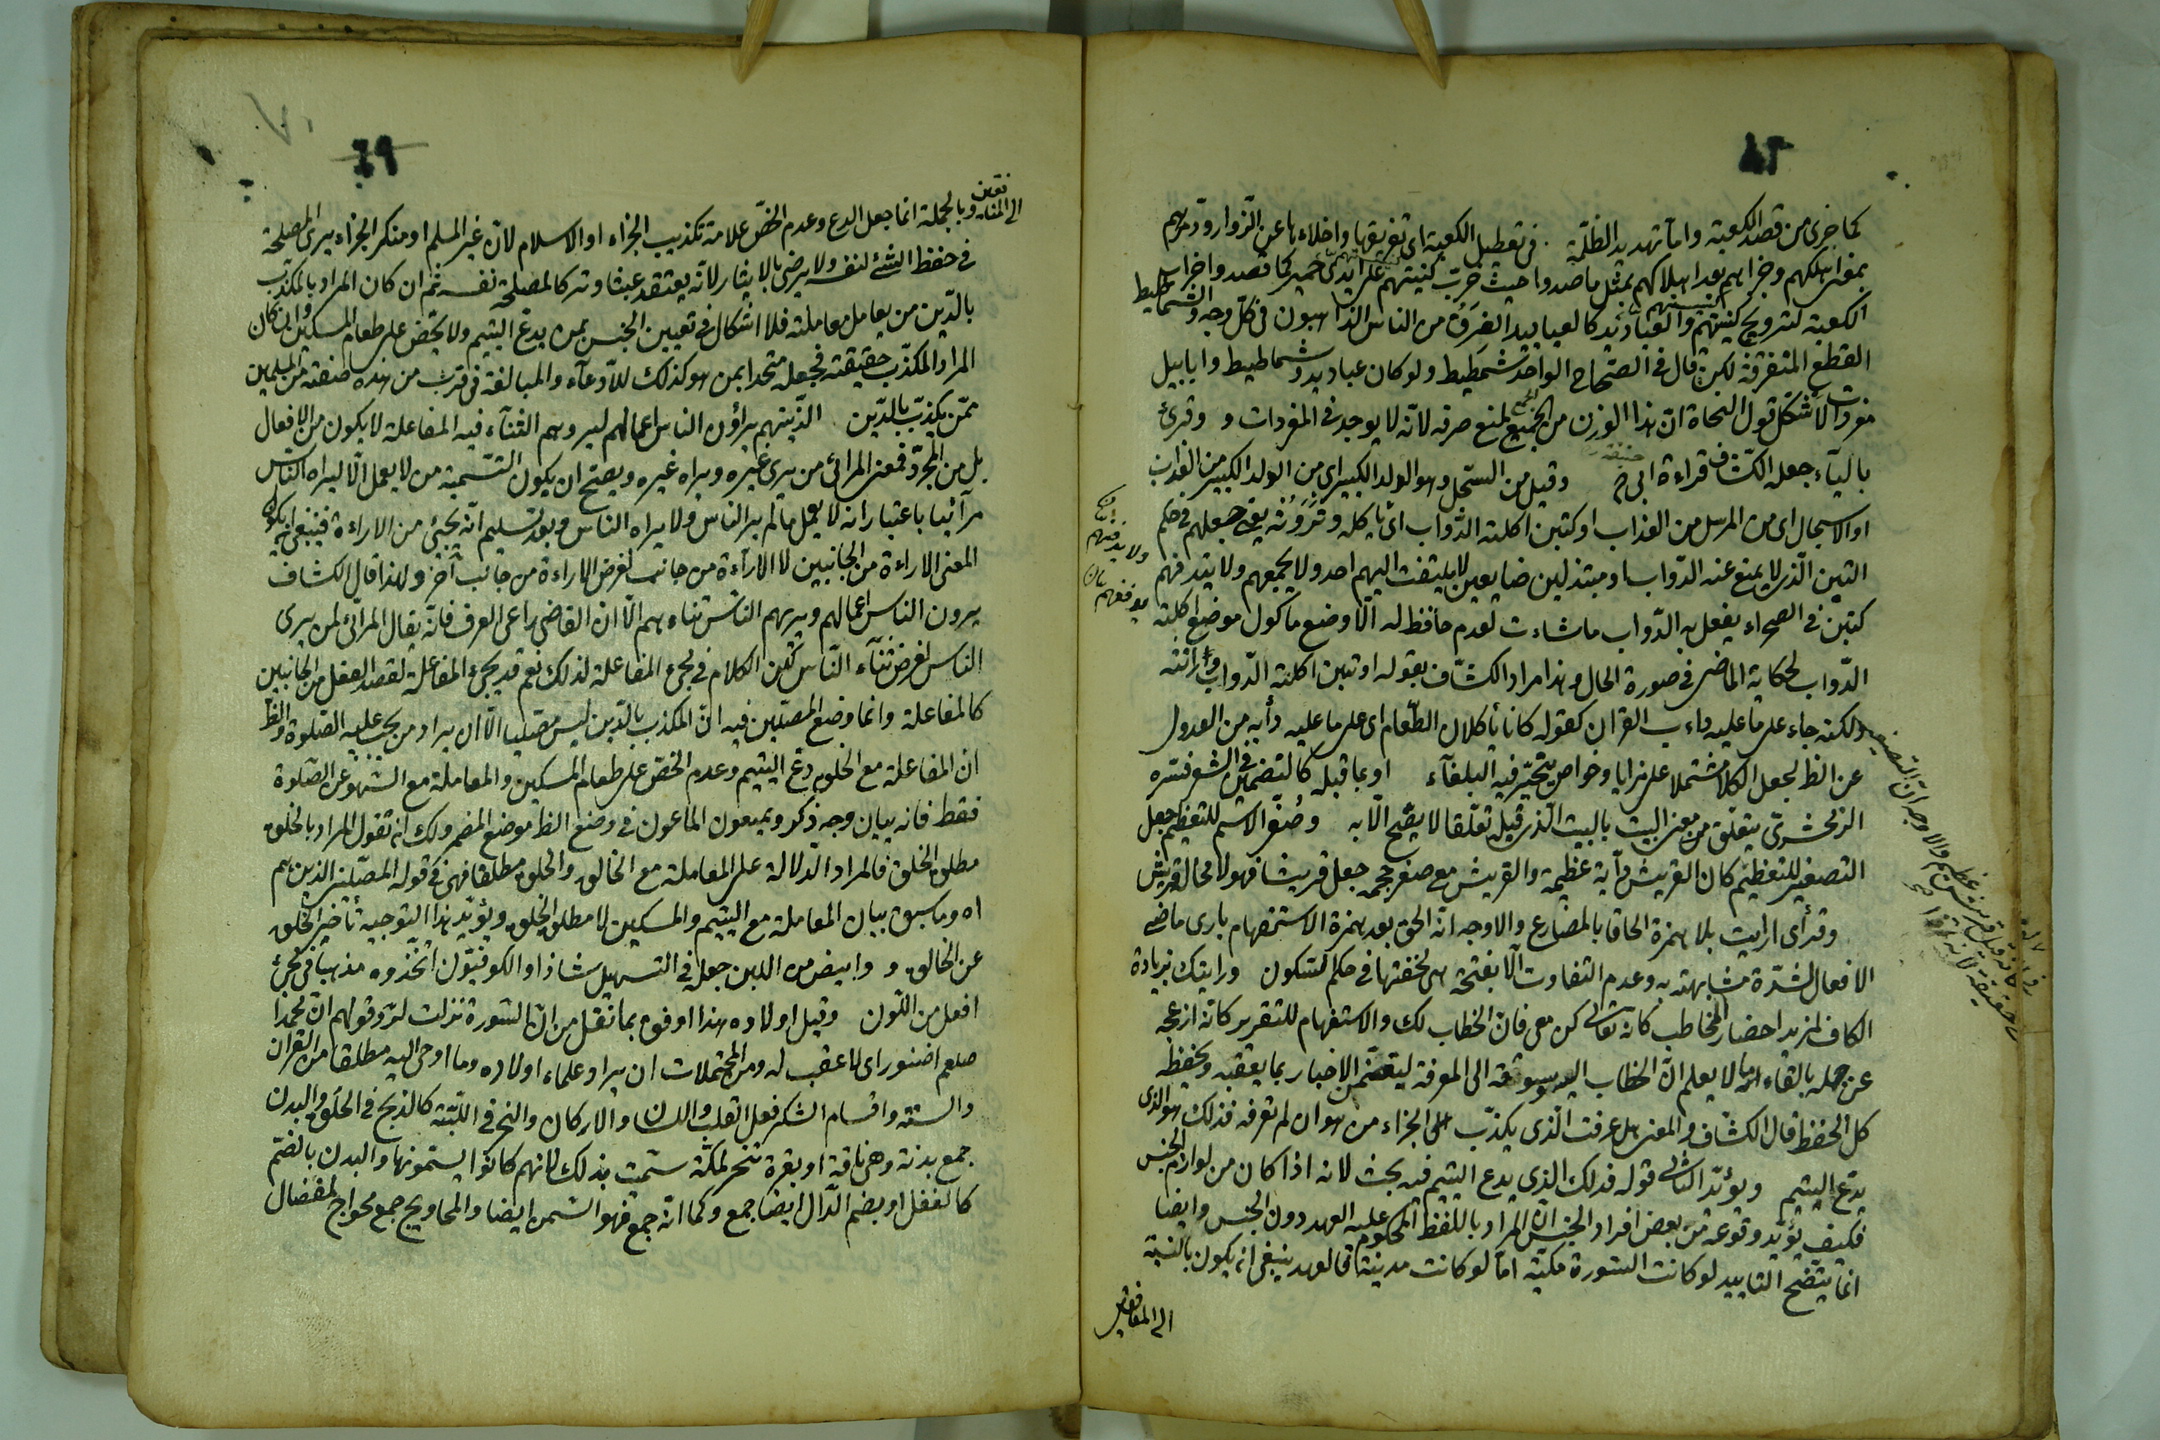 كما جرى من قصد الكعبة واما تهديد الظلمة في تعطيل الكعبة اى تفريقها واخلاءها عن الزوار
بمعنى اهلكهم وجزاهم بعد اهلاكهم بمثل ما قصدوا حيث خرب كنيستهم على ايدى حمير كما قصدوا اخراب
الكعبة لترويج كنيستهم والعباديد كالعبابيد الفرق من الناس الذاهبون في كل وجه والشماطيط
القطع المتفرقة لكن قال في الصحاح الواحد شمطيط ولو كان عباديد وشماطيط وابابيل
مفردات لاشكل قول النحاة ان هذا الوزن من الجمع لمنع صرفه لانه لا يوجد في المفردات و وقرئ
بالياء جعله الكشاف قراءة ابى ح وقيل من السجل وهو الدلو الكبير اى من الدلو الكبير من العذاب
او الاسجال اى من المرسل من العذاب او كتبن اكلته الدواب اى تأكله وتروثه يعنى جعلهم في حكم
التبن الذى لا يمنع عنه الدواب او مبتذلين ضايعين لا يلتفت اليهم احد ولا يجمعهم ولا يدفنهم
كتبن في الصحراء يفعل به الدواب ما شاءت لعدم حافظ له الا وضع مأكول موضع اكلته
الدواب لحكاية الماضى في صورة الحال وهذا مراد الكشاف بقوله او تبن اكلته الدواب وراثته
ولكنه جاء على ما عليه داءب القران كقوله كانا ياكلان الطعام اى على ما عليه دأبه من العدول
عن الظ لجعل الكلام مشتملا على مزايا وخواص يتحير فيه البلغآء او بما قبله كالتضمين في الشعر فسره
الزمخشرى بتعلق من معنى البيت بالبيت الذى قبله تعلقا لا يصح الا به وصغر الاسم للتعظيم جعل
التصغير للتعظيم كان القريش دآبة عظيمة والقريش مع صغر حجمه جعل قريشا فهو لا محالة قريش
وقرأى اريت بلا همزة الحاقا بالمضارع والاوجه انه الحق بعد همزة الاستفهام بارى ماضى
الافعال لشدة مشابهته به وعدم التفاوت الا بفتحة هى لخفتها في حكم السكون ورايتك بزيادة
الكاف لمزيد احضار المخاطب كانه تعالى كن معى فان الخطاب لك والاستفهام للتقرير كانه ازعجه
عن جهله بالقاء ما لا يعلم ان الخطاب اليه وشوقه الى المعرفة ليتضمن الاخبار بما يعقبه ويحفظه
كل الحفظ قال الكشاف والمعنى هل عرفت الذى يكذب الجزاء من هو ان لم تعرفه فذلك هو الذى
يدع اليتيم ويؤيد الثانى قوله فذلك الذى يدع اليتيم فيه بحث لانه اذا كان من لوازم الجنس
فكيف يؤيد وقوعه من بعض افراد الجنس ان المراد باللفظ المحكوم عليه العهد دون الجنس وايضا
انما يتضح التاييد لو كانت السورة مكية اما لو كانت مدنية فالعهد ينبغى ان يكون بالنسبة
الى المنافقين
ولا يدفنهم
الى المنافقين وبالجملة انما جعل الدع وعدم الحض علامة تكذيب الجزاء او الاسلام لان غير المسلم او منكر الجزاء يرى المصلحة
في حفظ الشئ لنفسه ولا يرضى بالايثار لانه يعتقده عبثا وتركا لمصلحة نفسه ثم ان كان المراد بالمكذب
بالدين من يعامل معاملته فلا اشكال في تعيين الجنس بمن يدع اليتيم ولا يحض على طعام المسكين وان كان
المراد المكذب حقيقته فجعله متحدا بمن هو كذلك للادعاء والمبالغة في قرب من هذه صفته من المسلمين
ممن يكذب بالدين الذين هم يراؤن الناس اعمالهم ليروهم الثناء فيه المفاعلة لا يكون من الافعال
بل من المجرد فمعنى المرائى من يرى غيره ويراه غيره ويصح ان يكون التسمية من لا يعمل الا ليراه الناس
مرآئيا باعتبار انه لا يعمل ما لم ير الناس ولا يراه الناس وبعد تسليم انه يجئ من الاراءة فينبغى ان يكون
المعنى الاراءة من الجانبين لا الاراءة من جانب لغرض الاراءة من جانب آخر ولهذا قال الكشاف
يرون الناس اعمالهم ويريهم الناس ثناءهم الا ان القاضى راعى العرف فانه يقال المرائى لمن يرى
الناس لغرض ثنآء الناس لكن الكلام في مجئ المفاعلة لذلك نعم قد يجئ المفاعلة لقصد الفعل من الجانبين
كالمفاعلة وانما وضع المصلين فيه ان المكذب بالدين ليس مصليا الا ان يراد من يجب عليه الصلوة والظ
ان المفاعلة مع الخلق دع اليتيم وعدم الحض على طعام المسكين والمعاملة مع السهو عن الصلوة
فقط فانه بيان وجه ذكر ويمنعون الماعون في وضع الظ موضع المضمر ولك ان تقول المراد بالخلق
مطلق الخلق فالمراد الدلالة على المعاملة مع الخالق والخلق مطلقا فهى في قوله المصلين الذين هم
اه وما سبق بيان المعاملة مع اليتيم والمسكين لا مطلق الخلق ويؤيد هذا التوجيه تأخير الخلق
عن الخالق و وابيض من اللبن جعل في التسهيل شاذا والكوفيون اتخذوه مذهبا في مجئ
افعل من اللون وقيل اولاده هذا اوفق بما نقل من ان السورة نزلت لرد قولهم ان محمدا
صلعم اصنبور اى لا عقب له ومن المحتملات ان يراد علماء اولاده وما اوحى اليه مطلقا من القران
والسنة واقسام الشكر فعل القلب واللسان والاركان والنحر في اللبة كالذبح في الحلق والبدن
جمع بدنة وهى ناقة او بقرة تنحر بمكة سميت بذلك لانهم كانوا يسمنونها والبدن بالضم
كالقفل او بضم الدال ايضا جمع وكما انه جمع فهو السمن ايضا والمحاويج جمع محواج لمفضال